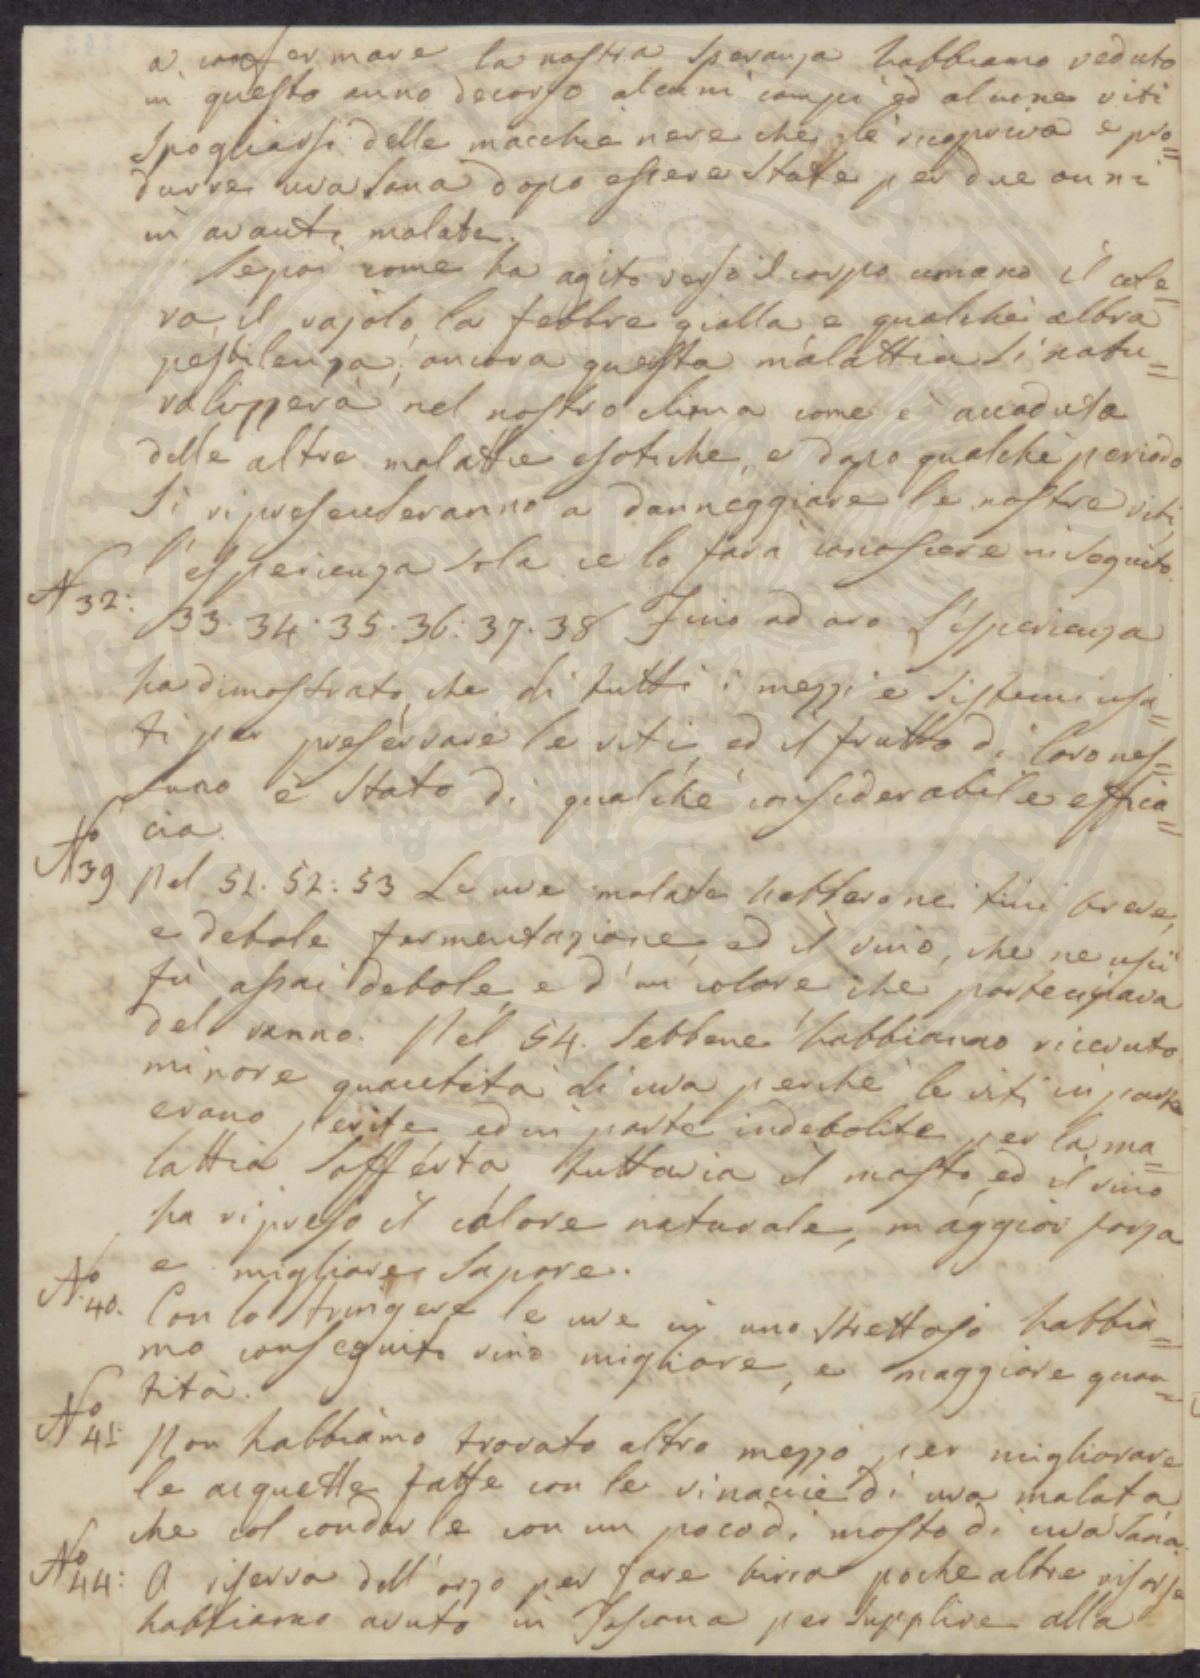 a confermare la nostra speranza habbiamo veduto
in questo anno decorso alcuni campi ed alcune viti
spogliarsi delle macchie nere che le ricopriva e pro=
durre uva sana dopo essere state per due anni
in avanti malate.
Se poi come ha agito verso il corpo umano il cole=
ra, il vajolo, la febbre gialla e qualche altra
pestilenza, ancora questa malattia si natu=
ralizzerà nel nostro clima come è accaduto
delle altre malattie esotiche, e dopo qualche periodo
si ripresenteranno a danneggiare le nostre viti,
l'esperienza sola ce lo farà conoscere in seguito.
N 32: 33. 34. 35. 36. 37. 38 Fino ad ora l'esperienza
ha dimostrato, che di tutti i mezzi e sistemi usa=
ti per preservare le viti, ed il frutto di loro nes=
suno è stato di qualche considerabile effica=
cia.
No 39 Nel 51. 52: 53 Le uve malate hebbero nei tini breve,
e debole fermentazione, ed il vino, che ne uscì
fù assai debole, e d'un colore che partecipava
del ranno. Nel 54. Sebbene habbiamo ricevuto
minore quantità di uva perché le viti in parte
erano perite ed in parte indebolite per la ma=
lattia sofferta, tuttavia il mosto, ed il vino
ha ripreso il colore naturale, maggior forza
e migliore sapore.
No 40. Con lo stringere le uve in uno strettojo habbia=
mo conseguito vino migliore, e maggiore quan=
tità.
No 41: Non habbiamo trovato altro mezzo per migliorare
le acquette fatte con le vinaccie di uva malata
che col condarle con un poco di mosto di uva sana.
No 44: A riserva dell'orzo per fare birra poche altre risorse
habbiamo avuto in Toscana per supplire alla